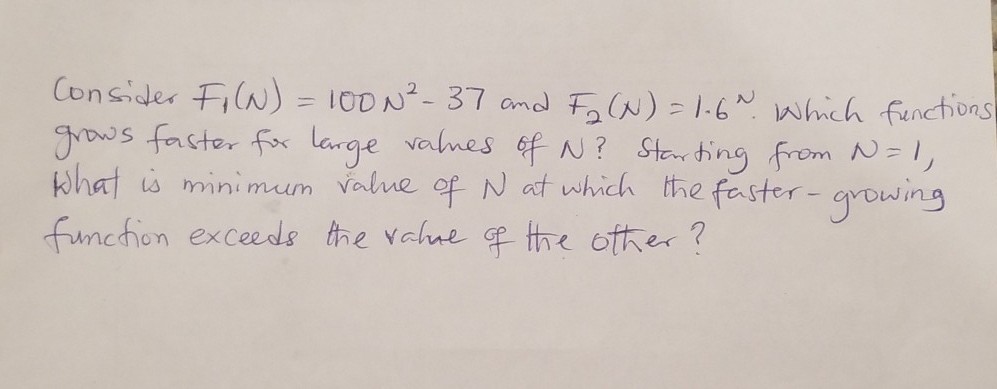 Consider F₁(N) = 100N² - 37 and F₂(N) = 1.6ᴺ. Which functions
grows faster for large values of N? Starting from N=1,
What is minimum value of N at which the faster-growing
function exceeds the value of the other?